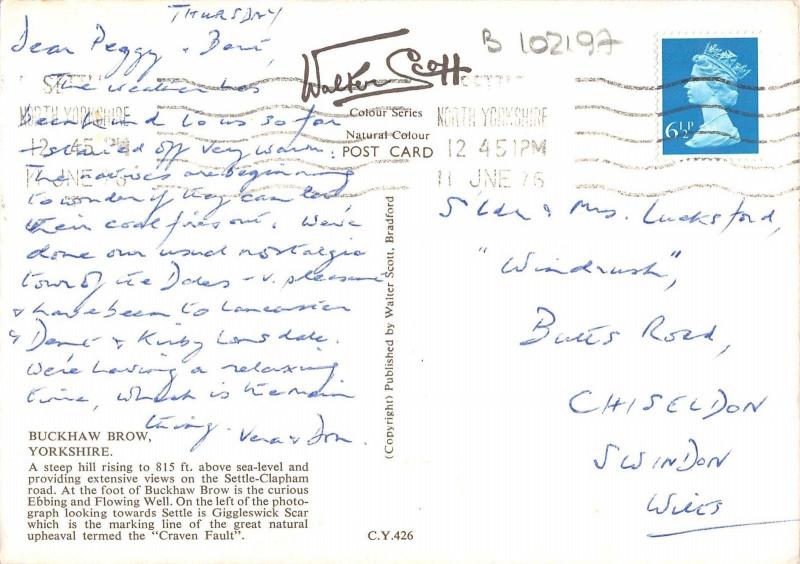 THURSDAY
Dear Peggy & Bert,
The weather has
been kind to us so far
& started off very warm.
The natives are beginning
to wonder if they can let
their coal fires out. We've
done our usual nostalgic
tour of the Dales - v. pleasant
& have been to Lancaster
& Dent & Kirby Lonsdale.
We're having a relaxing
time, which is the main
thing. Vera & Don.
BUCKHAW BROW,
YORKSHIRE.
A steep hill rising to 815 ft. above sea-level and
providing extensive views on the Settle-Clapham
road. At the foot of Buckhaw Brow is the curious
Ebbing and Flowing Well. On the left of the photo-
graph looking towards Settle is Giggleswick Scar
which is the marking line of the great natural
upheaval termed the "Craven Fault".
C.Y.426
Walter Scott
Colour Series
Natural Colour
POST CARD
(Copyright) Published by Walter Scott, Bradford
B 102197
NORTH YORKSHIRE
12 45 PM
11 JNE 76
SETTLE
NORTH YORKSHIRE
12 45 PM
11 JNE 76
6½P
& Mrs. Lucksford,
"Windrush",
Butts Road,
CHISELDON
SWINDON
Wilts